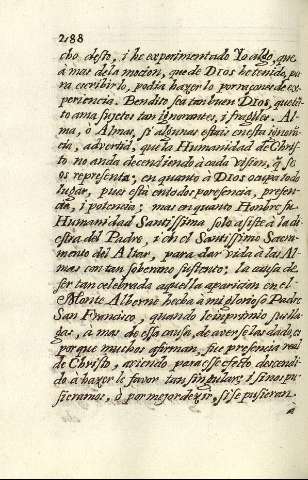 288
cho desto, i he experimentado Yo algo, que
à mas de la mocion, que de DIOS he tenido, pa
ra escribirlo, podia hazerlo por razones de ex
periencia. Bendito sea tan buen DIOS, que tā
to ama sujetos tan ignorantes, i fragiles. Al
ma, ò Almas, si algunas estais en esta ignorā
cia, advertid, que la Humanidad de Chris
to no anda decendiendo à cada vision, q̃ se
os representa; en quanto à DIOS ocupa todo
lugar, pues està en todos por esencia, presen
cia, i potencia; mas en quanto Hombre su
Humanidad Santissima solo asiste à la di
estra del Padre, i en el Santissimo Sacra
mento del Altar, para dar vida à las Al
mas con tan soberano sustento; la causa de
ser tan celebrada aquella aparicion en el
Monte Alberne hecha à mi glorioso Padre
San Francisco, quando le inprimio sus lla
gas, à mas de essa causa, de averse las dado, es
porque muchos afirman, fue presencia real
de Christo, aviendo para esse efecto descendi
do à hazer le favor tan singular; i si nos pu
sieramos, ò por mejor dezir, si se pusieran
a